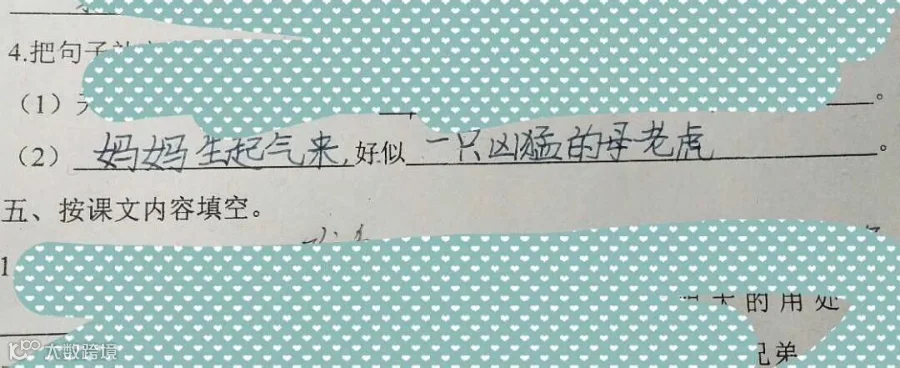 4.把句子
（1）
（2）妈妈生起气来,好似一只凶猛的母老虎。
五、按课文内容填空。
1
的用处
兄弟
大数跨境